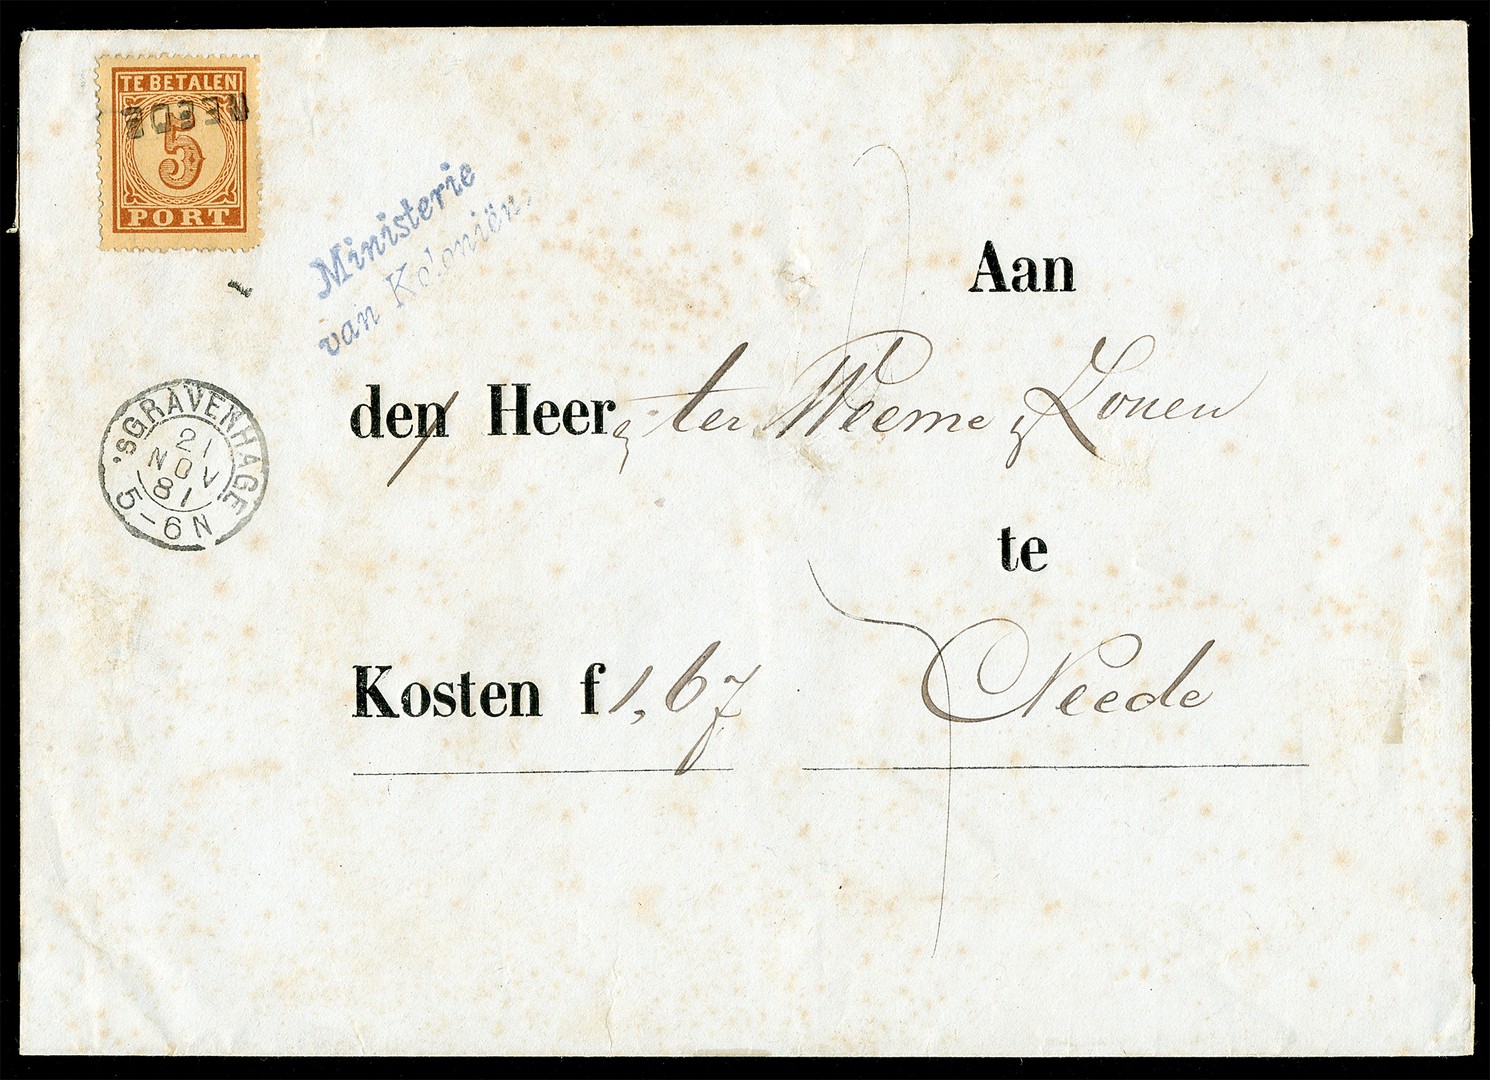 TE BETALEN
NEEDE
5
PORT
Ministerie
van Koloniën.
'SGRAVENHAGE
21
NOV
81
5-6N
Aan
den Heeren ter Weeme & Zonen
te
Kosten f 1,67 Neede